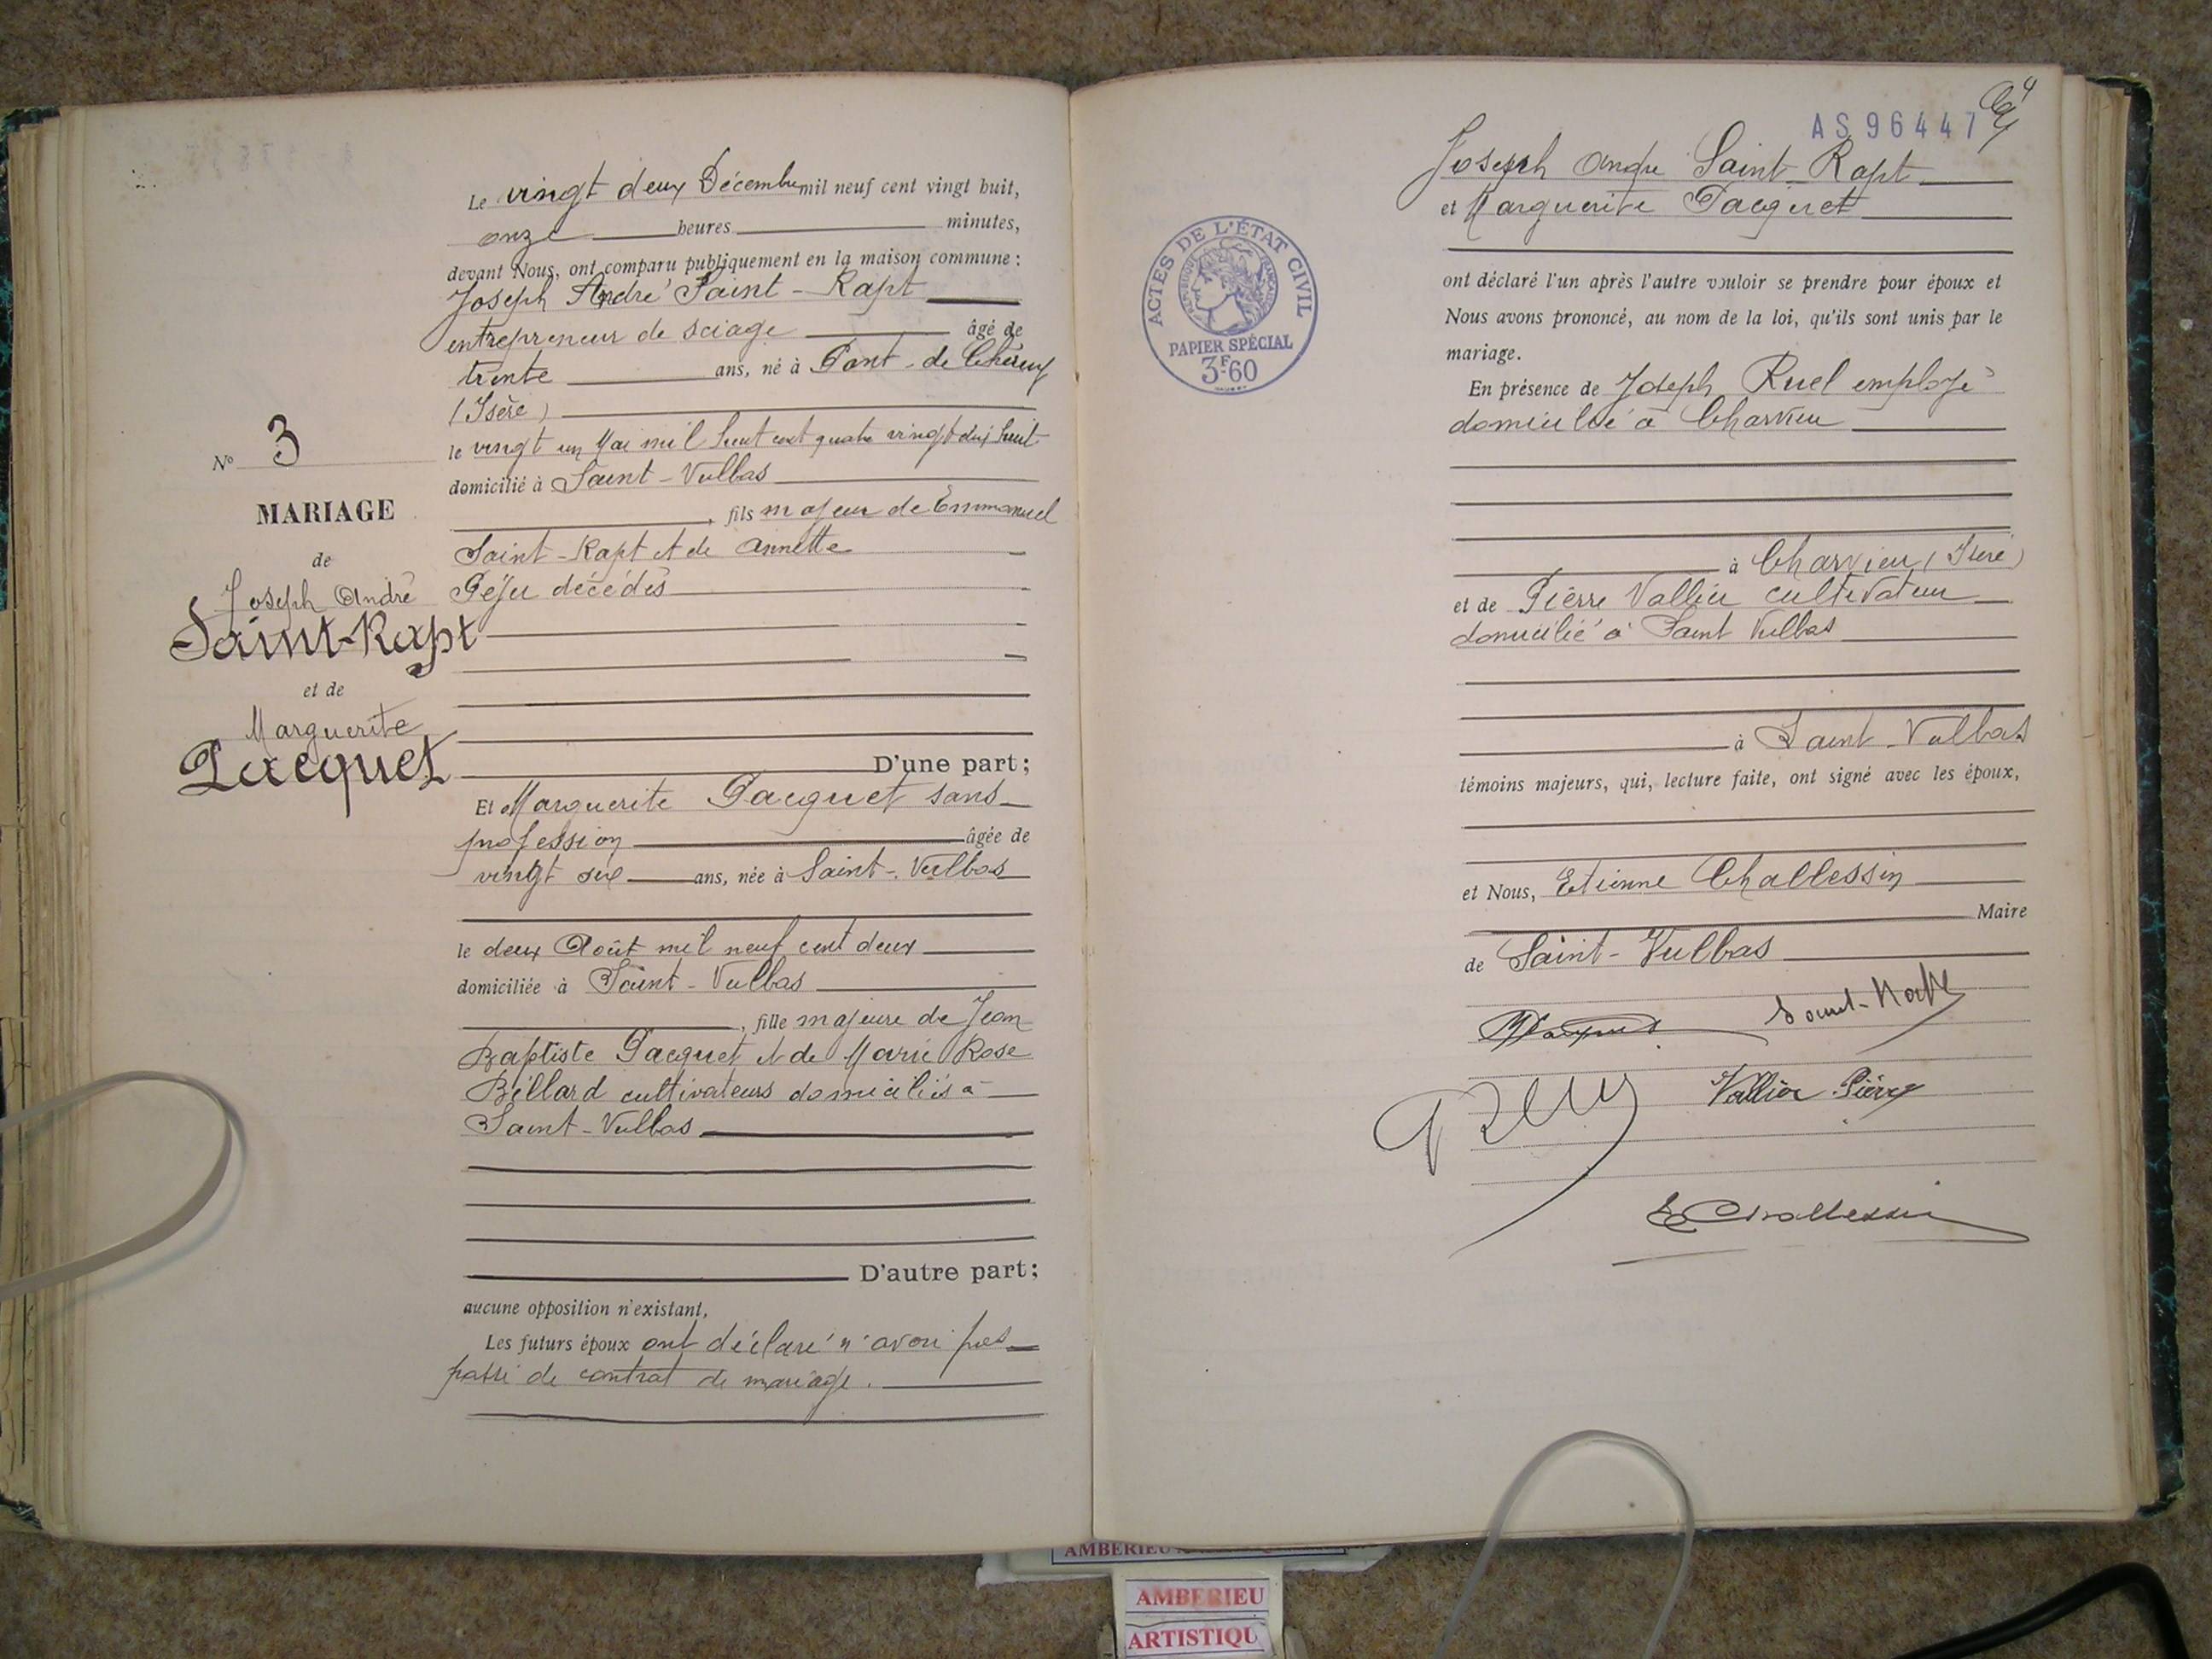 Le vingt deux Décembre mil neuf cent vingt huit,
onze heures minutes,
devant Nous, ont comparu publiquement en la maison commune :
Joseph André Saint-Rapt
entrepreneur de sciage âgé de
trente ans, né à Pont-de Chéruy
(Isère)
le vingt un Mai mil huit cent quatre vingt dix huit
domicilié à Saint-Vulbas
, fils majeur de Emmanuel
Saint-Rapt et de Annette
Péju décédés
D'une part ;
Nº 3
MARIAGE
de
Joseph André
Saint-Rapt
et de
Marguerite
Pacquet
Et Marguerite Pacquet sans
profession âgée de
vingt six ans, née à Saint-Vulbas
le deux Août mil neuf cent deux
domiciliée à Saint-Vulbas
, fille majeure de Jean
Baptiste Pacquet et de Marie Rose
Billard cultivateurs domiciliés à
Saint-Vulbas
D'autre part ;
aucune opposition n'existant,
Les futurs époux ont déclaré n'avoir pas
passé de contrat de mariage.
AS 96447
Joseph André Saint-Rapt
et Marguerite Pacquet
ACTES DE L'ÉTAT CIVIL
RÉPUBLIQUE FRANÇAISE
PAPIER SPÉCIAL
3F60
ont déclaré l'un après l'autre vouloir se prendre pour époux et
Nous avons prononcé, au nom de la loi, qu'ils sont unis par le
mariage.
En présence de Joseph Ruel employé
domicilié à Charvieu
à Charvieu (Isère)
et de Pierre Vallier cultivateur
domicilié à Saint Vulbas
à Saint-Vulbas
témoins majeurs, qui, lecture faite, ont signé avec les époux,
et Nous, Etienne Challessin
Maire
de Saint-Vulbas
MPacquet Saint-Rapt
Ruel Vallier Pierre
E Challessin
AMBERIEU
AMBERIEU
ARTISTIQU